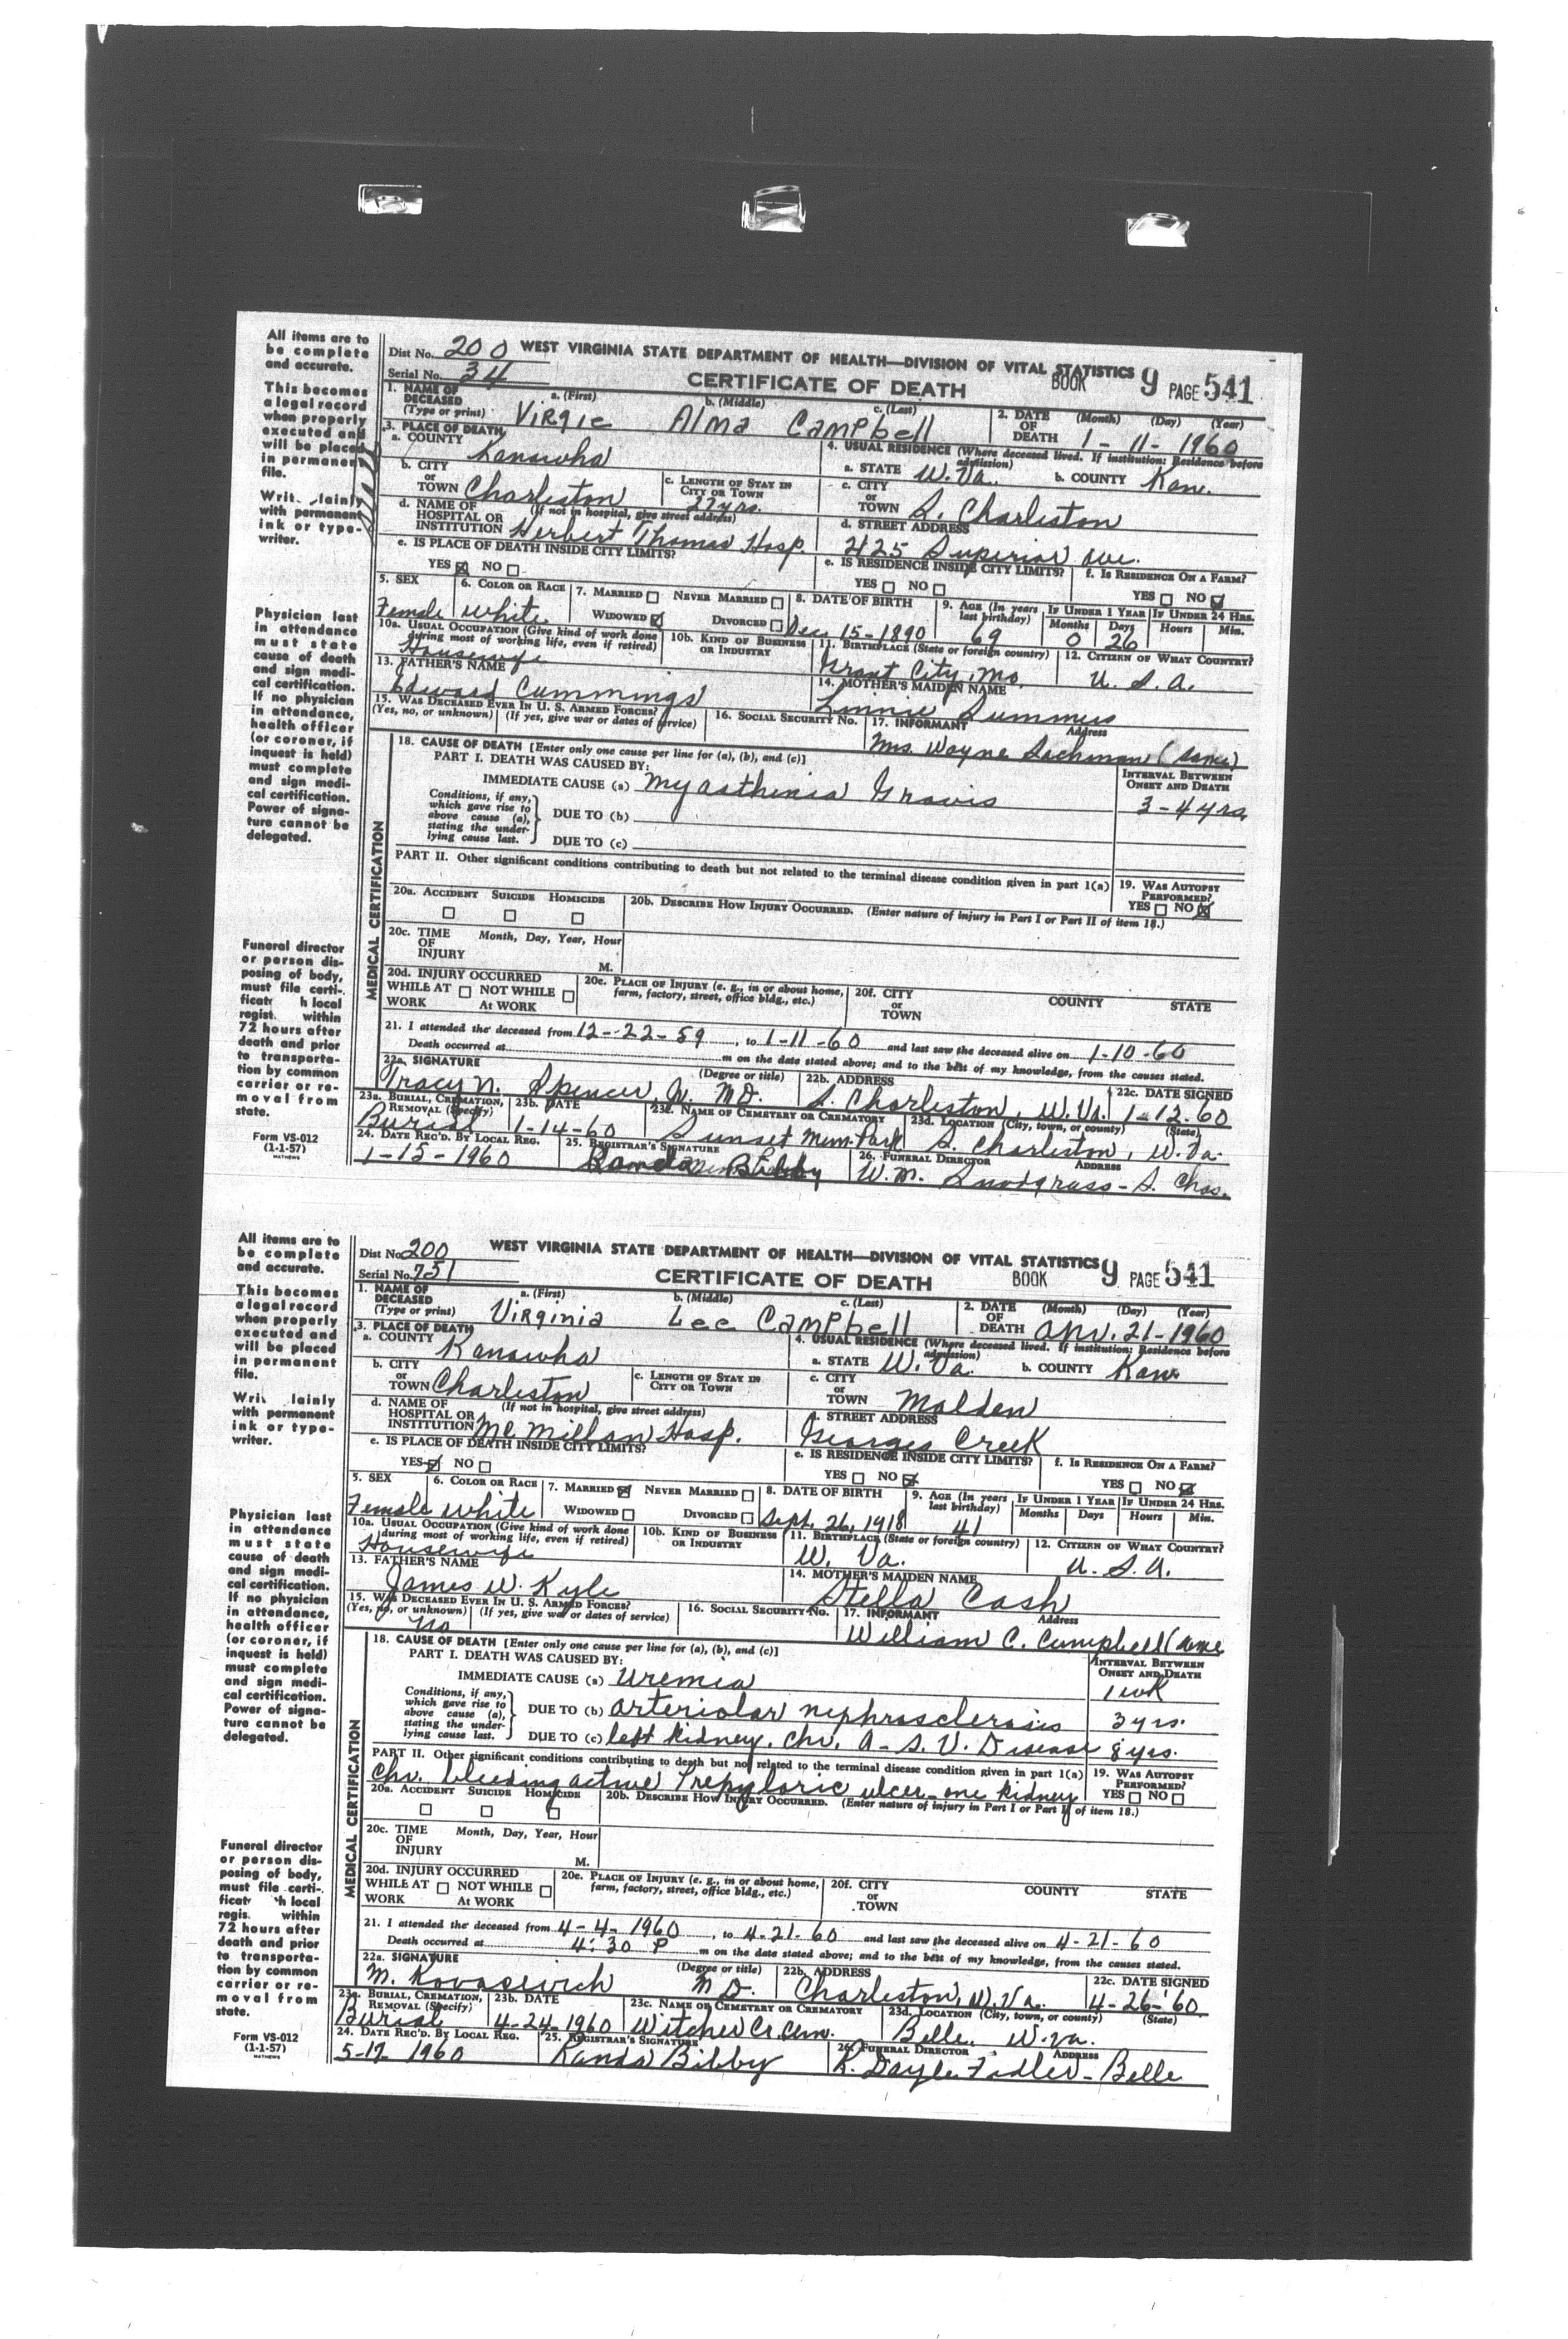 All items are to
be complete
and accurate.
This becomes
a legal record
when properly
executed and
will be placed
in permanent
file.
Writ lainly
with permanent
ink or type-
writer.
Physician last
in attendance
must state
cause of death
and sign medi-
cal certification.
If no physician
in attendance,
health officer
(or coroner, if
inquest is held)
must complete
and sign medi-
cal certification.
Power of signa-
ture cannot be
delegated.
Funeral director
or person dis-
posing of body,
must file certi-
ficat h local
regist. within
72 hours after
death and prior
to transporta-
tion by common
carrier or re-
moval from
state.
Form VS-012
(1-1-57)
MATHEWS
Dist No. 200 WEST VIRGINIA STATE DEPARTMENT OF HEALTH—DIVISION OF VITAL STATISTICS
Serial No. 34 CERTIFICATE OF DEATH BOOK 9 PAGE 541
1. NAME OF DECEASED (Type or print) a. (First) Virgie b. (Middle) Alma c. (Last) Campbell 2. DATE OF DEATH (Month) (Day) (Year) 1-11-1960
3. PLACE OF DEATH 4. USUAL RESIDENCE (Where deceased lived. If institution: Residence before admission)
a. COUNTY Kanawha a. STATE W. Va. b. COUNTY Kan.
b. CITY or TOWN Charleston c. LENGTH OF STAY IN CITY OR TOWN 27 yrs. c. CITY or TOWN S. Charleston
d. NAME OF HOSPITAL OR INSTITUTION (If not in hospital, give street address) Herbert Thomas Hosp. d. STREET ADDRESS 425 Superior Ave.
e. IS PLACE OF DEATH INSIDE CITY LIMITS? e. IS RESIDENCE INSIDE CITY LIMITS? f. IS RESIDENCE ON A FARM?
YES NO YES NO YES NO
5. SEX Female 6. COLOR OR RACE white 7. MARRIED NEVER MARRIED WIDOWED DIVORCED 8. DATE OF BIRTH Dec. 15-1890 9. AGE (In years last birthday) 69 IF UNDER 1 YEAR Months 0 Days 26 IF UNDER 24 HRS. Hours Min.
10a. USUAL OCCUPATION (Give kind of work done during most of working life, even if retired) Housewife 10b. KIND OF BUSINESS OR INDUSTRY 11. BIRTHPLACE (State or foreign country) Grant City, Mo. 12. CITIZEN OF WHAT COUNTRY? U. S. A.
13. FATHER'S NAME Edward Cummings 14. MOTHER'S MAIDEN NAME Linnie Summers
15. WAS DECEASED EVER IN U. S. ARMED FORCES? (Yes, no, or unknown) (If yes, give war or dates of service) 16. SOCIAL SECURITY NO. 17. INFORMANT Address Mrs. Wayne (same)
MEDICAL CERTIFICATION
18. CAUSE OF DEATH [Enter only one cause per line for (a), (b), and (c)] INTERVAL BETWEEN ONSET AND DEATH
PART I. DEATH WAS CAUSED BY:
IMMEDIATE CAUSE (a) Myasthinia Gravis 3-4 yrs
Conditions, if any, which gave rise to above cause (a), stating the underlying cause last. DUE TO (b)
DUE TO (c)
PART II. Other significant conditions contributing to death but not related to the terminal disease condition given in part 1(a) 19. WAS AUTOPSY PERFORMED? YES NO
20a. ACCIDENT SUICIDE HOMICIDE 20b. DESCRIBE HOW INJURY OCCURRED. (Enter nature of injury in Part I or Part II of item 18.)
20c. TIME OF INJURY Month, Day, Year, Hour M.
20d. INJURY OCCURRED WHILE AT WORK NOT WHILE AT WORK 20e. PLACE OF INJURY (e. g., in or about home, farm, factory, street, office bldg., etc.) 20f. CITY or TOWN COUNTY STATE
21. I attended the deceased from 12-22-59, to 1-11-60 and last saw the deceased alive on 1-10-60
Death occurred at m on the date stated above; and to the best of my knowledge, from the causes stated.
22a. SIGNATURE (Degree or title) Tracy N. Spencer, Jr. MD. 22b. ADDRESS S. Charleston, W. Va. 22c. DATE SIGNED 1-12-60
23a. BURIAL, CREMATION, REMOVAL (Specify) Burial 23b. DATE 1-14-60 23c. NAME OF CEMETERY OR CREMATORY Sunset Mem. Park 23d. LOCATION (City, town, or county) (State) S. Charleston, W. Va.
24. DATE REC'D. BY LOCAL REG. 1-15-1960 25. REGISTRAR'S SIGNATURE Bibby 26. FUNERAL DIRECTOR ADDRESS W. M. Snodgrass - S. Chas.
All items are to
be complete
and accurate.
This becomes
a legal record
when properly
executed and
will be placed
in permanent
file.
Writ lainly
with permanent
ink or type-
writer.
Physician last
in attendance
must state
cause of death
and sign medi-
cal certification.
If no physician
in attendance,
health officer
(or coroner, if
inquest is held)
must complete
and sign medi-
cal certification.
Power of signa-
ture cannot be
delegated.
Funeral director
or person dis-
posing of body,
must file certi-
ficat h local
regis. within
72 hours after
death and prior
to transporta-
tion by common
carrier or re-
moval from
state.
Form VS-012
(1-1-57)
MATHEWS
Dist No. 200 WEST VIRGINIA STATE DEPARTMENT OF HEALTH—DIVISION OF VITAL STATISTICS
Serial No. 751 CERTIFICATE OF DEATH BOOK 9 PAGE 541
1. NAME OF DECEASED (Type or print) a. (First) Virginia b. (Middle) Lee c. (Last) Campbell 2. DATE OF DEATH (Month) (Day) (Year) Apr. 21-1960
3. PLACE OF DEATH 4. USUAL RESIDENCE (Where deceased lived. If institution: Residence before admission)
a. COUNTY Kanawha a. STATE W. Va. b. COUNTY Kan.
b. CITY or TOWN Charleston c. LENGTH OF STAY IN CITY OR TOWN c. CITY or TOWN Malden
d. NAME OF HOSPITAL OR INSTITUTION (If not in hospital, give street address) McMillan Hosp. d. STREET ADDRESS Georges Creek
e. IS PLACE OF DEATH INSIDE CITY LIMITS? e. IS RESIDENCE INSIDE CITY LIMITS? f. IS RESIDENCE ON A FARM?
YES NO YES NO YES NO
5. SEX Female 6. COLOR OR RACE white 7. MARRIED NEVER MARRIED WIDOWED DIVORCED 8. DATE OF BIRTH Sept. 26, 1918 9. AGE (In years last birthday) 41 IF UNDER 1 YEAR Months Days IF UNDER 24 HRS. Hours Min.
10a. USUAL OCCUPATION (Give kind of work done during most of working life, even if retired) Housewife 10b. KIND OF BUSINESS OR INDUSTRY 11. BIRTHPLACE (State or foreign country) W. Va. 12. CITIZEN OF WHAT COUNTRY? U. S. A.
13. FATHER'S NAME James W. Kyle 14. MOTHER'S MAIDEN NAME Stella Cash
15. WAS DECEASED EVER IN U. S. ARMED FORCES? (Yes, no, or unknown) (If yes, give war or dates of service) no 16. SOCIAL SECURITY NO. 17. INFORMANT Address William C. Campbell (same
MEDICAL CERTIFICATION
18. CAUSE OF DEATH [Enter only one cause per line for (a), (b), and (c)] INTERVAL BETWEEN ONSET AND DEATH
PART I. DEATH WAS CAUSED BY:
IMMEDIATE CAUSE (a) Uremia 1 wk
Conditions, if any, which gave rise to above cause (a), stating the underlying cause last. DUE TO (b) arteriolar nephrosclerosis 3 yrs.
DUE TO (c) left kidney. Chr. A-S. V. Disease 8 yrs.
PART II. Other significant conditions contributing to death but not related to the terminal disease condition given in part 1(a) 19. WAS AUTOPSY PERFORMED? YES NO
Chr. bleeding active Prepyloric ulcer - one kidney
20a. ACCIDENT SUICIDE HOMICIDE 20b. DESCRIBE HOW INJURY OCCURRED. (Enter nature of injury in Part I or Part II of item 18.)
20c. TIME OF INJURY Month, Day, Year, Hour M.
20d. INJURY OCCURRED WHILE AT WORK NOT WHILE AT WORK 20e. PLACE OF INJURY (e. g., in or about home, farm, factory, street, office bldg., etc.) 20f. CITY or TOWN COUNTY STATE
21. I attended the deceased from 4-4-1960, to 4-21-60 and last saw the deceased alive on 4-21-60
Death occurred at 4:30 P m on the date stated above; and to the best of my knowledge, from the causes stated.
22a. SIGNATURE (Degree or title) M. Kovacevich M D. 22b. ADDRESS Charleston, W. Va. 22c. DATE SIGNED 4-26-'60
23a. BURIAL, CREMATION, REMOVAL (Specify) Burial 23b. DATE 4-24-1960 23c. NAME OF CEMETERY OR CREMATORY Witcher Cr. Cem. 23d. LOCATION (City, town, or county) (State) Belle, W. Va.
24. DATE REC'D. BY LOCAL REG. 5-17-1960 25. REGISTRAR'S SIGNATURE Randa Bibby 26. FUNERAL DIRECTOR ADDRESS K. Dayle Fidler - Belle